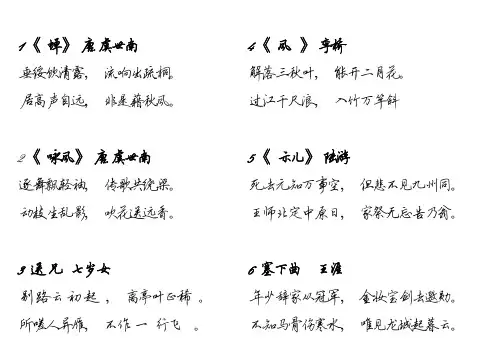 1《 蝉》 唐 虞世南
垂绥饮清露， 流响出疏桐。
居高声自远， 非是藉秋风。
2《 咏风》 唐 虞世南
逐舞飘轻袖， 传歌共绕梁。
动枝生乱影， 吹花送远香。
3 送兄 七岁女
别路云初起 ， 离亭叶正稀 。
所嗟人异雁， 不作一行飞 。
4《 风 》 李峤
解落三秋叶， 能开二月花。
过江千尺浪， 入竹万竿斜
5《 示儿》 陆游
死去元知万事空， 但悲不见九州同。
王师北定中原日， 家祭无忘告乃翁。
6 塞下曲 王涯
年少辞家从冠军， 金妆宝剑去邀勋。
不知马骨伤寒水， 唯见龙城起暮云。